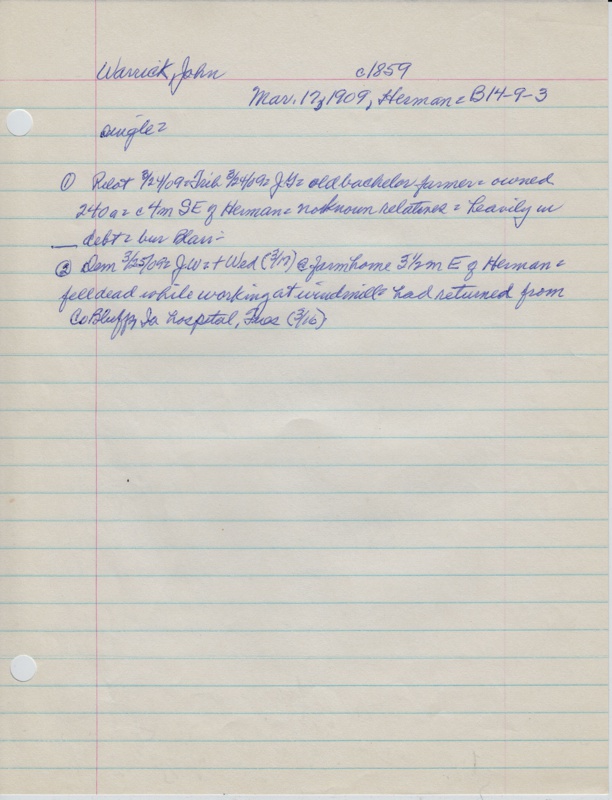 Warrick, John c1859
Mar. 17, 1909, Herman = B14-9-3
single =
① Pilot 3/24/09 = Trib 3/24/09 = J.W. = old bachelor farmer = owned
240a = c4m SE of Herman = no known relatives = heavily in
debt = bur Blair =
② Dem 3/25/09 = J.W. = + Wed (3/17) @ farmhome 3 1/2 m E of Herman =
fell dead while working at windmill = had returned from
Co Bluffs, Ia hospital, Tues (3/16)